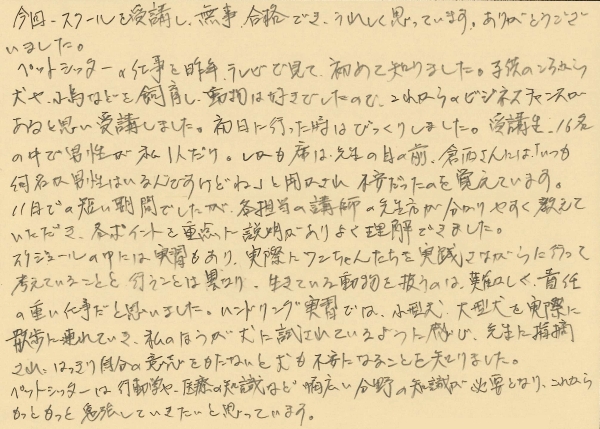 今回、スクールを受講し、無事、合格でき、うれしく思っています。ありがとうござ
いました。
ペットシッターの仕事を昨年、テレビで見て、初めて知りました。子供のころから
犬や、小鳥などを飼育し、動物は好きでしたので、これからのビジネスチャンスが
あると思い受講しました。初日に行った時はびっくりしました。受講生、16名
の中で男性が私1人だけ。しかも席は、先生の目の前、倉西さんには「いつも
何名か男性はいるんですけどね」と聞かされ不安だったのを覚えています。
11日での短い期間でしたが、各担当の講師の先生方が分かりやすく教えて
いただき、各ポイントを重点に説明がありよく理解できました。
スケジュールの中には実習もあり、実際にワンちゃんたちを実践さながらに行って
考えていることと行うことは異なり、生きている動物を扱うのは、難しく、責任
の重い仕事だと思いました。ハンドリング実習では、小型犬、大型犬を実際に
散歩に連れていき、私のほうが犬に試されているように感じ、先生に指摘
され、はっきり自分の意志をもたないと犬も不安になることを知りました。
ペットシッターは、行動学や、医療の知識など幅広い分野の知識が必要となり、これから
もっともっと勉強していきたいと思っています。